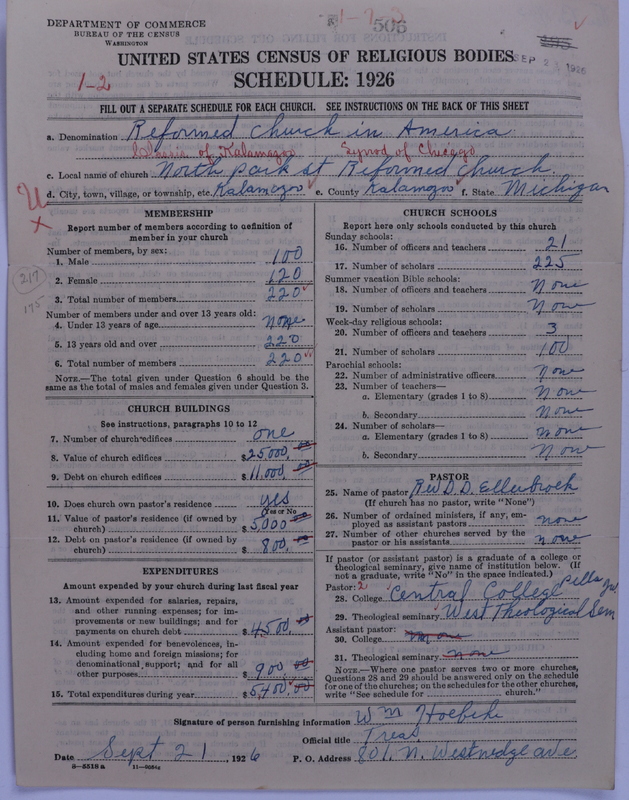 DEPARTMENT OF COMMERCE
BUREAU OF THE CENSUS
WASHINGTON
506
SEP 2 1926
UNITED STATES CENSUS OF RELIGIOUS BODIES
1-2
SCHEDULE: 1926
FILL OUT A SEPARATE SCHEDULE FOR EACH CHURCH. SEE INSTRUCTIONS ON THE BACK OF THIS SHEET
a. Denomination Reformed Church in America
Classis of Kalamazoo Synod of Chicago
c. Local name of church North Park St Reformed Church
d. City, town, village, or township, etc. Kalamazoo e. County Kalamazoo f. State Michigan
MEMBERSHIP
Report number of members according to definition of member in your church
Number of members, by sex:
1. Male 100
2. Female 120
3. Total number of members 220
217
175
Number of members under and over 13 years old:
4. Under 13 years of age none
5. 13 years old and over 220
6. Total number of members 220
NOTE.—The total given under Question 6 should be the
same as the total of males and females given under Question 3.
CHURCH BUILDINGS
See instructions, paragraphs 10 to 12
7. Number of church edifices one
8. Value of church edifices $25,000.00
9. Debt on church edifices $11,000.00
10. Does church own pastor's residence yes
(Yes or No)
11. Value of pastor's residence (if owned by
church) $5,000.00
12. Debt on pastor's residence (if owned by
church) $800.00
EXPENDITURES
Amount expended by your church during last fiscal year
13. Amount expended for salaries, repairs,
and other running expenses; for im-
provements or new buildings; and for
payments on church debt $4500.00
14. Amount expended for benevolences, in-
cluding home and foreign missions; for
denominational support; and for all
other purposes $900.00
15. Total expenditures during year $5,400.00
CHURCH SCHOOLS
Report here only schools conducted by this church
Sunday schools:
16. Number of officers and teachers 21
17. Number of scholars 225
Summer vacation Bible schools:
18. Number of officers and teachers None
19. Number of scholars None
Week-day religious schools:
20. Number of officers and teachers 3
21. Number of scholars 100
Parochial schools:
22. Number of administrative officers None
23. Number of teachers—
a. Elementary (grades 1 to 8) None
b. Secondary None
24. Number of scholars—
a. Elementary (grades 1 to 8) None
b. Secondary None
PASTOR
25. Name of pastor Rev D. D. Ellerbroek
(If church has no pastor, write "None")
26. Number of ordained ministers, if any, em-
ployed as assistant pastors none
27. Number of other churches served by the
pastor or his assistants none
If pastor (or assistant pastor) is a graduate of a college or
theological seminary, give name of institution below. (If
not a graduate, write "No" in the space indicated.)
Pastor: 2
28. College Central College Pella
29. Theological seminary West Theological Sem
Assistant pastor:
30. College none
31. Theological seminary none
NOTE.—Where one pastor serves two or more churches,
Questions 28 and 29 should be answered only on the schedule
for one of the churches; on the schedules for the other churches,
write "See schedule for church."
Signature of person furnishing information Wm Hoebeke
Official title Treas
Date Sept 21, 1926 P. O. Address 801 N. Westnedge ave.
8-5518 a